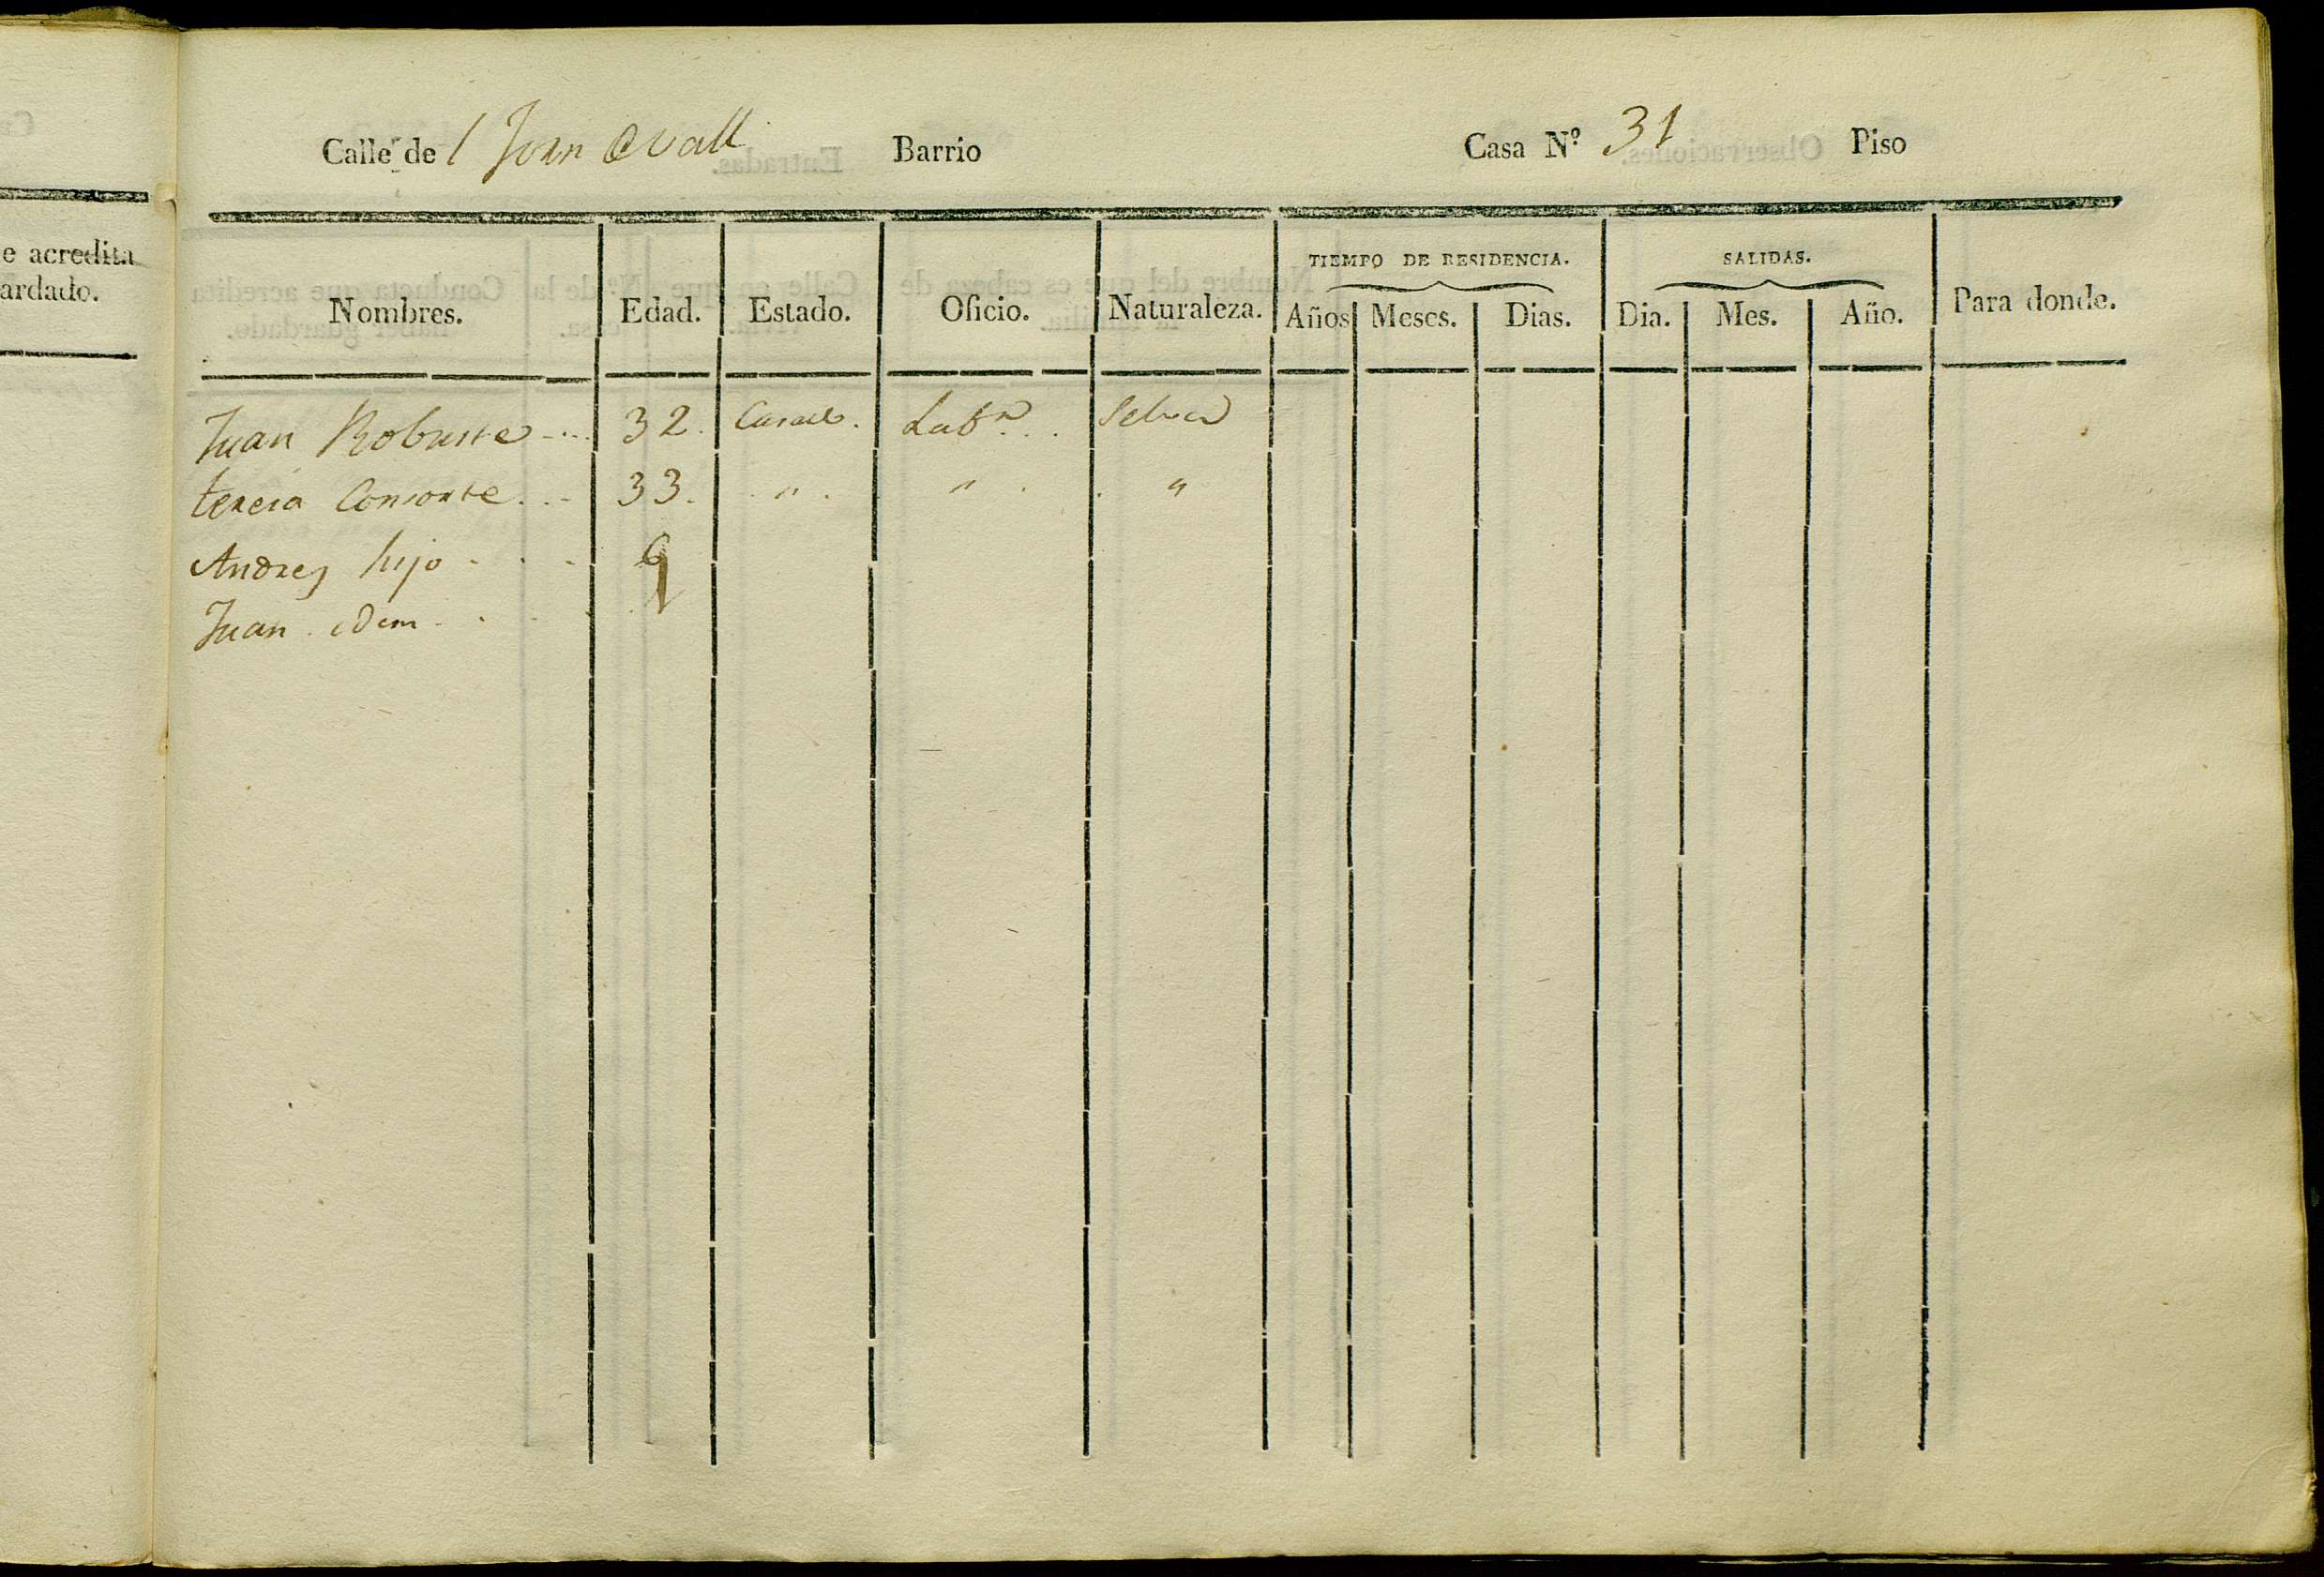 e acredita
ardado.
Calle de l Forn Avall Barrio Casa N.º 31 Piso
TIEMPO DE RESIDENCIA. SALIDAS.
Nombres. Edad. Estado. Oficio. Naturaleza. Años Meses. Dias. Dia. Mes. Año. Para donde.
Juan Robuste 32. Casad. Lab.r Selva
teresa Consorte 33. " " "
Andres hijo 6
Juan idem 1